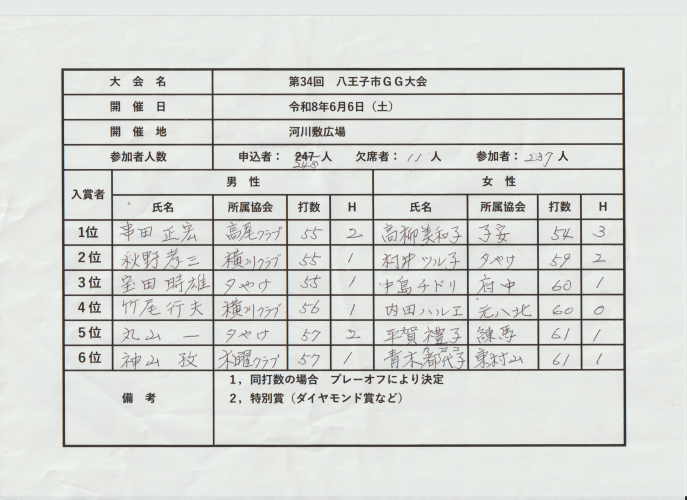 大会名 第34回 八王子市GG大会
開催日 令和8年6月6日（土）
開催地 河川敷広場
参加者人数 申込者：247人 欠席者：11人 参加者：237人
248
入賞者 男性 女性
氏名 所属協会 打数 H 氏名 所属協会 打数 H
1位 串田 正宏 高尾クラブ 55 2 高柳美和子 子安 54 3
2位 秋野孝三 横川クラブ 55 1 村井ツル子 夕やけ 59 2
3位 室田時雄 夕やけ 55 1 中島チドリ 府中 60 1
4位 竹尾行夫 横川クラブ 56 1 内田ハルエ 元八北 60 0
5位 丸山一 夕やけ 57 2 平賀禮子 練馬 61 1
6位 神山 木曜クラブ 57 1 青木都代子 東村山 61 1
備考 1，同打数の場合 プレーオフにより決定
2，特別賞（ダイヤモンド賞など）